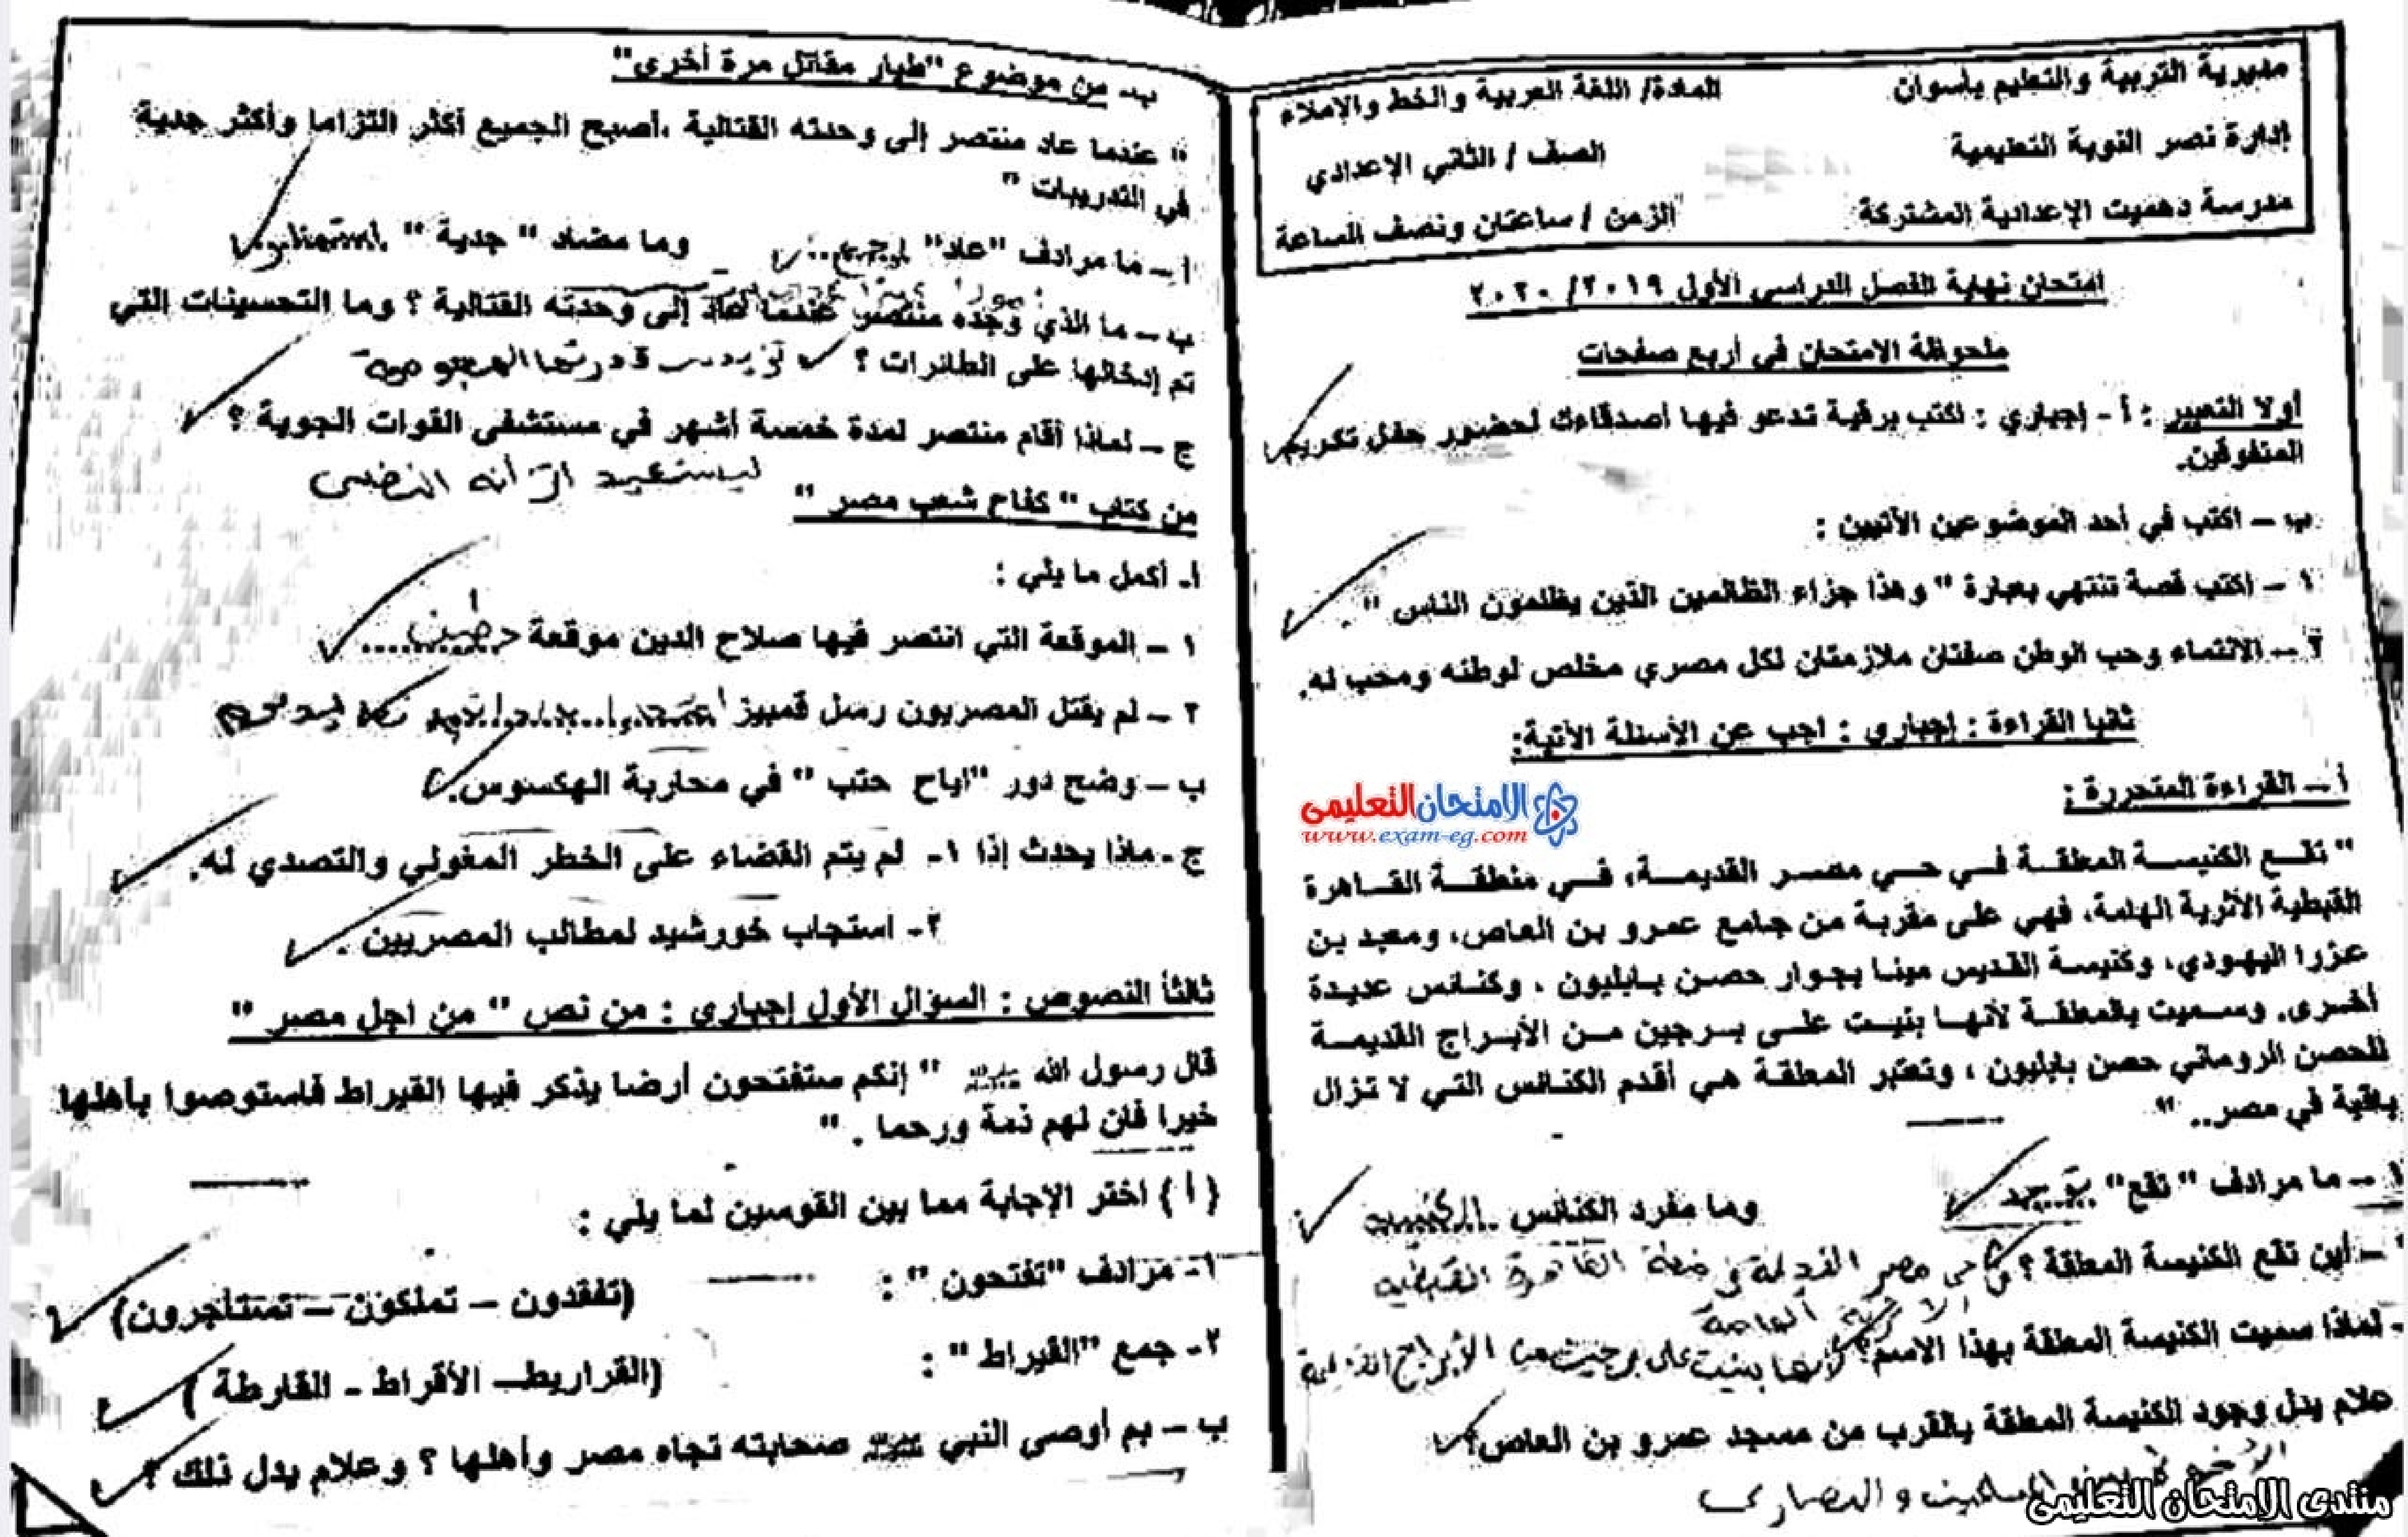 مديرية التربية والتعليم بأسوان
المادة/ اللغة العربية والخط والإملاء
إدارة نصر النوبة التعليمية
الصف / الثاني الإعدادي
مدرسة دهميت الإعدادية المشتركة
الزمن / ساعتان ونصف الساعة
امتحان نهاية الفصل الدراسي الأول ٢٠١٩/ ٢٠٢٠
ملحوظة الامتحان في أربع صفحات
أولا التعبير : أ - إجباري : اكتب برقية تدعو فيها أصدقاءك لحضور حفل تكريم
المتفوقين.
ب – اكتب في أحد الموضوعين الآتيين :
١ – اكتب قصة تنتهي بعبارة " وهذا جزاء الظالمين الذين يظلمون الناس ".
٢ – الانتماء وحب الوطن صفتان ملازمتان لكل مصري مخلص لوطنه ومحب له.
ثانيا القراءة : إجباري : اجب عن الأسئلة الآتية:
أ – القراءة المتحررة :
الامتحان التعليمى
www.exam-eg.com
" تقع الكنيسة المعلقة في حي مصر القديمة، في منطقة القاهرة
القبطية الأثرية الهامة، فهي على مقربة من جامع عمرو بن العاص، ومعبد بن
عزرا اليهودي، وكنيسة القديس مينا بجوار حصن بابليون ، وكنائس عديدة
أخرى. وسميت بالمعلقة لأنها بنيت على برجين من الأبراج القديمة
للحصن الروماني حصن بابليون ، وتعتبر المعلقة هي أقدم الكنائس التي لا تزال
باقية في مصر.. "
١ – ما مرادف " تقع" توجد وما مفرد الكنائس الكنيسة
– أين تقع الكنيسة المعلقة ؟ في حي مصر القديمة في منطقة القاهرة القبطية
الأثرية الهامة
- لماذا سميت الكنيسة المعلقة بهذا الاسم؟ لأنها بنيت على برجين من الأبراج القديمة
علام يدل وجود الكنيسة المعلقة بالقرب من مسجد عمرو بن العاص؟
المسلمين والنصارى
منتدى الامتحان التعليمى
ب- من موضوع "طيار مقاتل مرة أخرى"
" عندما عاد منتصر إلى وحدته القتالية ،أصبح الجميع أكثر التزاما وأكثر جدية
في التدريبات "
أ – ما مرادف "عاد" رجع وما مضاد " جدية " استهتار
ب – ما الذي وجده منتصر عندما عاد إلى وحدته القتالية ؟ وما التحسينات التي
تم إدخالها على الطائرات ؟ تزيد من قدرتها الهجومية
ج – لماذا أقام منتصر لمدة خمسة أشهر في مستشفى القوات الجوية ؟
ليستعيد اتزانه النفسى
من كتاب " كفاح شعب مصر "
أ- أكمل ما يلي :
١ – الموقعة التي انتصر فيها صلاح الدين موقعة حطين
٢ – لم يقتل المصريون رسل قمبيز
ب – وضح دور "اياح حتب " في محاربة الهكسوس.
ج - ماذا يحدث إذا ١- لم يتم القضاء على الخطر المغولي والتصدي له.
٢- استجاب خورشيد لمطالب المصريين .
ثالثا النصوص : السؤال الأول إجباري : من نص " من اجل مصر "
قال رسول الله ﷺ " إنكم ستفتحون أرضا يذكر فيها القيراط فاستوصوا بأهلها
خيرا فان لهم ذمة ورحما . "
( أ ) اختر الإجابة مما بين القوسين لما يلي :
١- مرادف "تفتحون " : (تفقدون – تملكون – تستأجرون)
٢- جمع "القيراط" : (القراريط– الأقراط - القارطة )
ب – بم أوصى النبي ﷺ صحابته تجاه مصر وأهلها ؟ وعلام يدل ذلك ؟